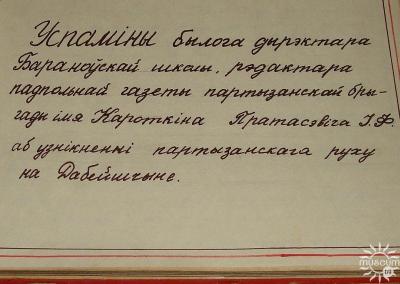 Успаміны былога дырэктара
Бараноўскай школы, рэдактара
падпольнай газеты партызанскай бры-
гады імя Кароткіна Пратасэвіча І.Ф.
аб узнікненні партызанскага руху
на Дабейшчыне.
museum
by